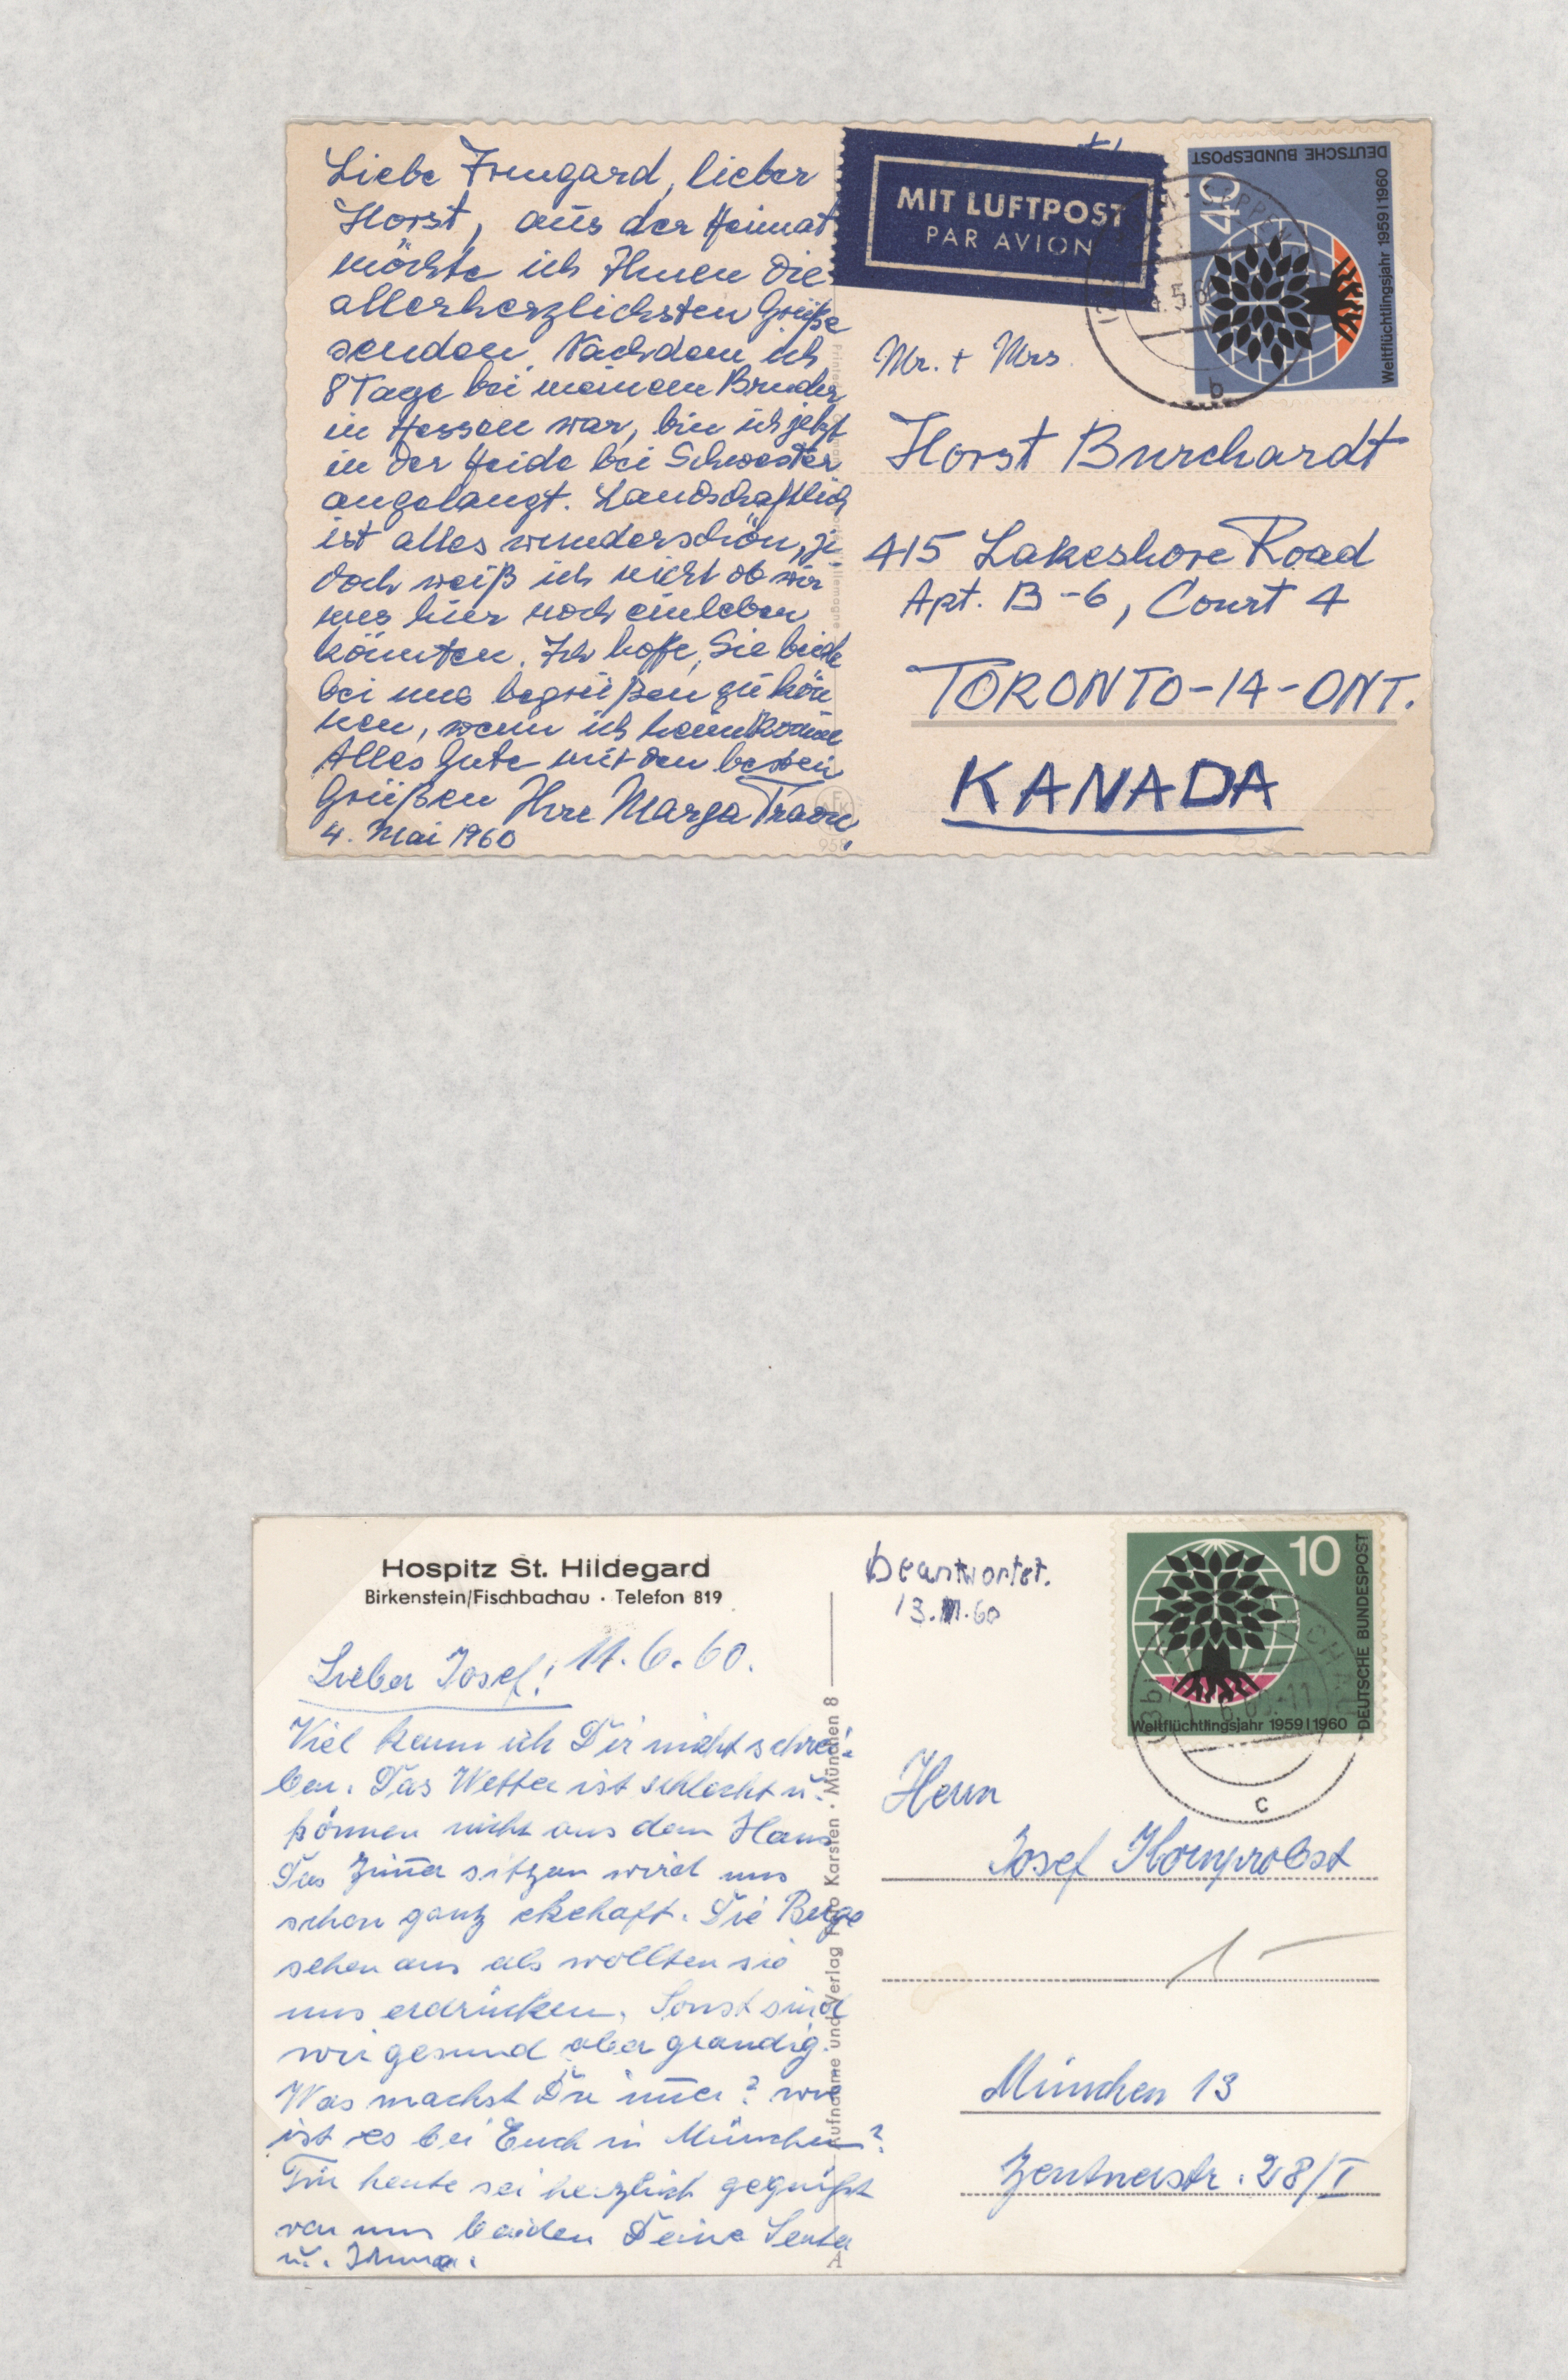 Liebe Irmgard, lieber
Horst, aus der Heimat
möchte ich Ihnen die
allerherzlichsten Grüße
senden. Nachdem ich
8 Tage bei meinem Bruder
in Hessen war, bin ich jetzt
in der Heide bei Schwester
angelangt. Landschaftlich
ist alles wunderschön, je
doch weiß ich nicht ob wir
uns hier noch einleben
könnten. Ich hoffe, Sie beide
bei uns begrüßen zu kön
nen, wenn ich heimkomme
Alles Gute mit den besten
Grüßen Ihre Marga
4. Mai 1960
MIT LUFTPOST
PAR AVION
DEUTSCHE BUNDESPOST
40
Weltflüchtlingsjahr 1959|1960
b
Mr. + Mrs.
Horst Burchardt
415 Lakeshore Road
Apt. B-6, Court 4
TORONTO-14-ONT.
KANADA
Hospitz St. Hildegard
Birkenstein/Fischbachau · Telefon 819
Lieber Josef! 11.6.60.
Viel kann ich Dir nicht schrei-
ben. Das Wetter ist schlecht u.
können nicht aus dem Haus
Das Zimer sitzen wird uns
schon ganz ekehaft. Die Berge
sehen aus als wollten sie
uns erdrücken. Sonst sind
wir gesund aber grandig.
Was machst Du imer? wie
ist es bei Euch in München?
Für heute sei herzlich gegrüßt
von uns beiden Deine Senta
u.
Aufnahme und Verlag Karsten · München 8
A
beantwortet.
13. .60
10
DEUTSCHE BUNDESPOST
Weltflüchtlingsjahr 1959|1960
c
Herrn
Josef Hornprobst
München 13
Zentnerstr. 28/I